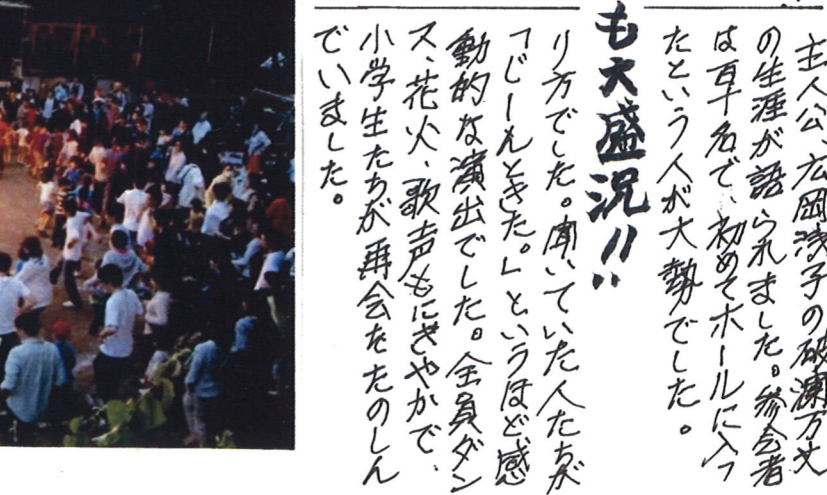 主人公、広岡浅子の破瀾万丈
の生涯が語られました。参会者
は百十名で、初めてホールに入っ
たという人が大勢でした。
も大盛況!!
り方でした。聞いていた人たちが
「じーんときた。」というほど、感
動的な演出でした。全員ダン
ス、花火、歌声もにぎやかで、
小学生たちが再会をたのしん
でいました。